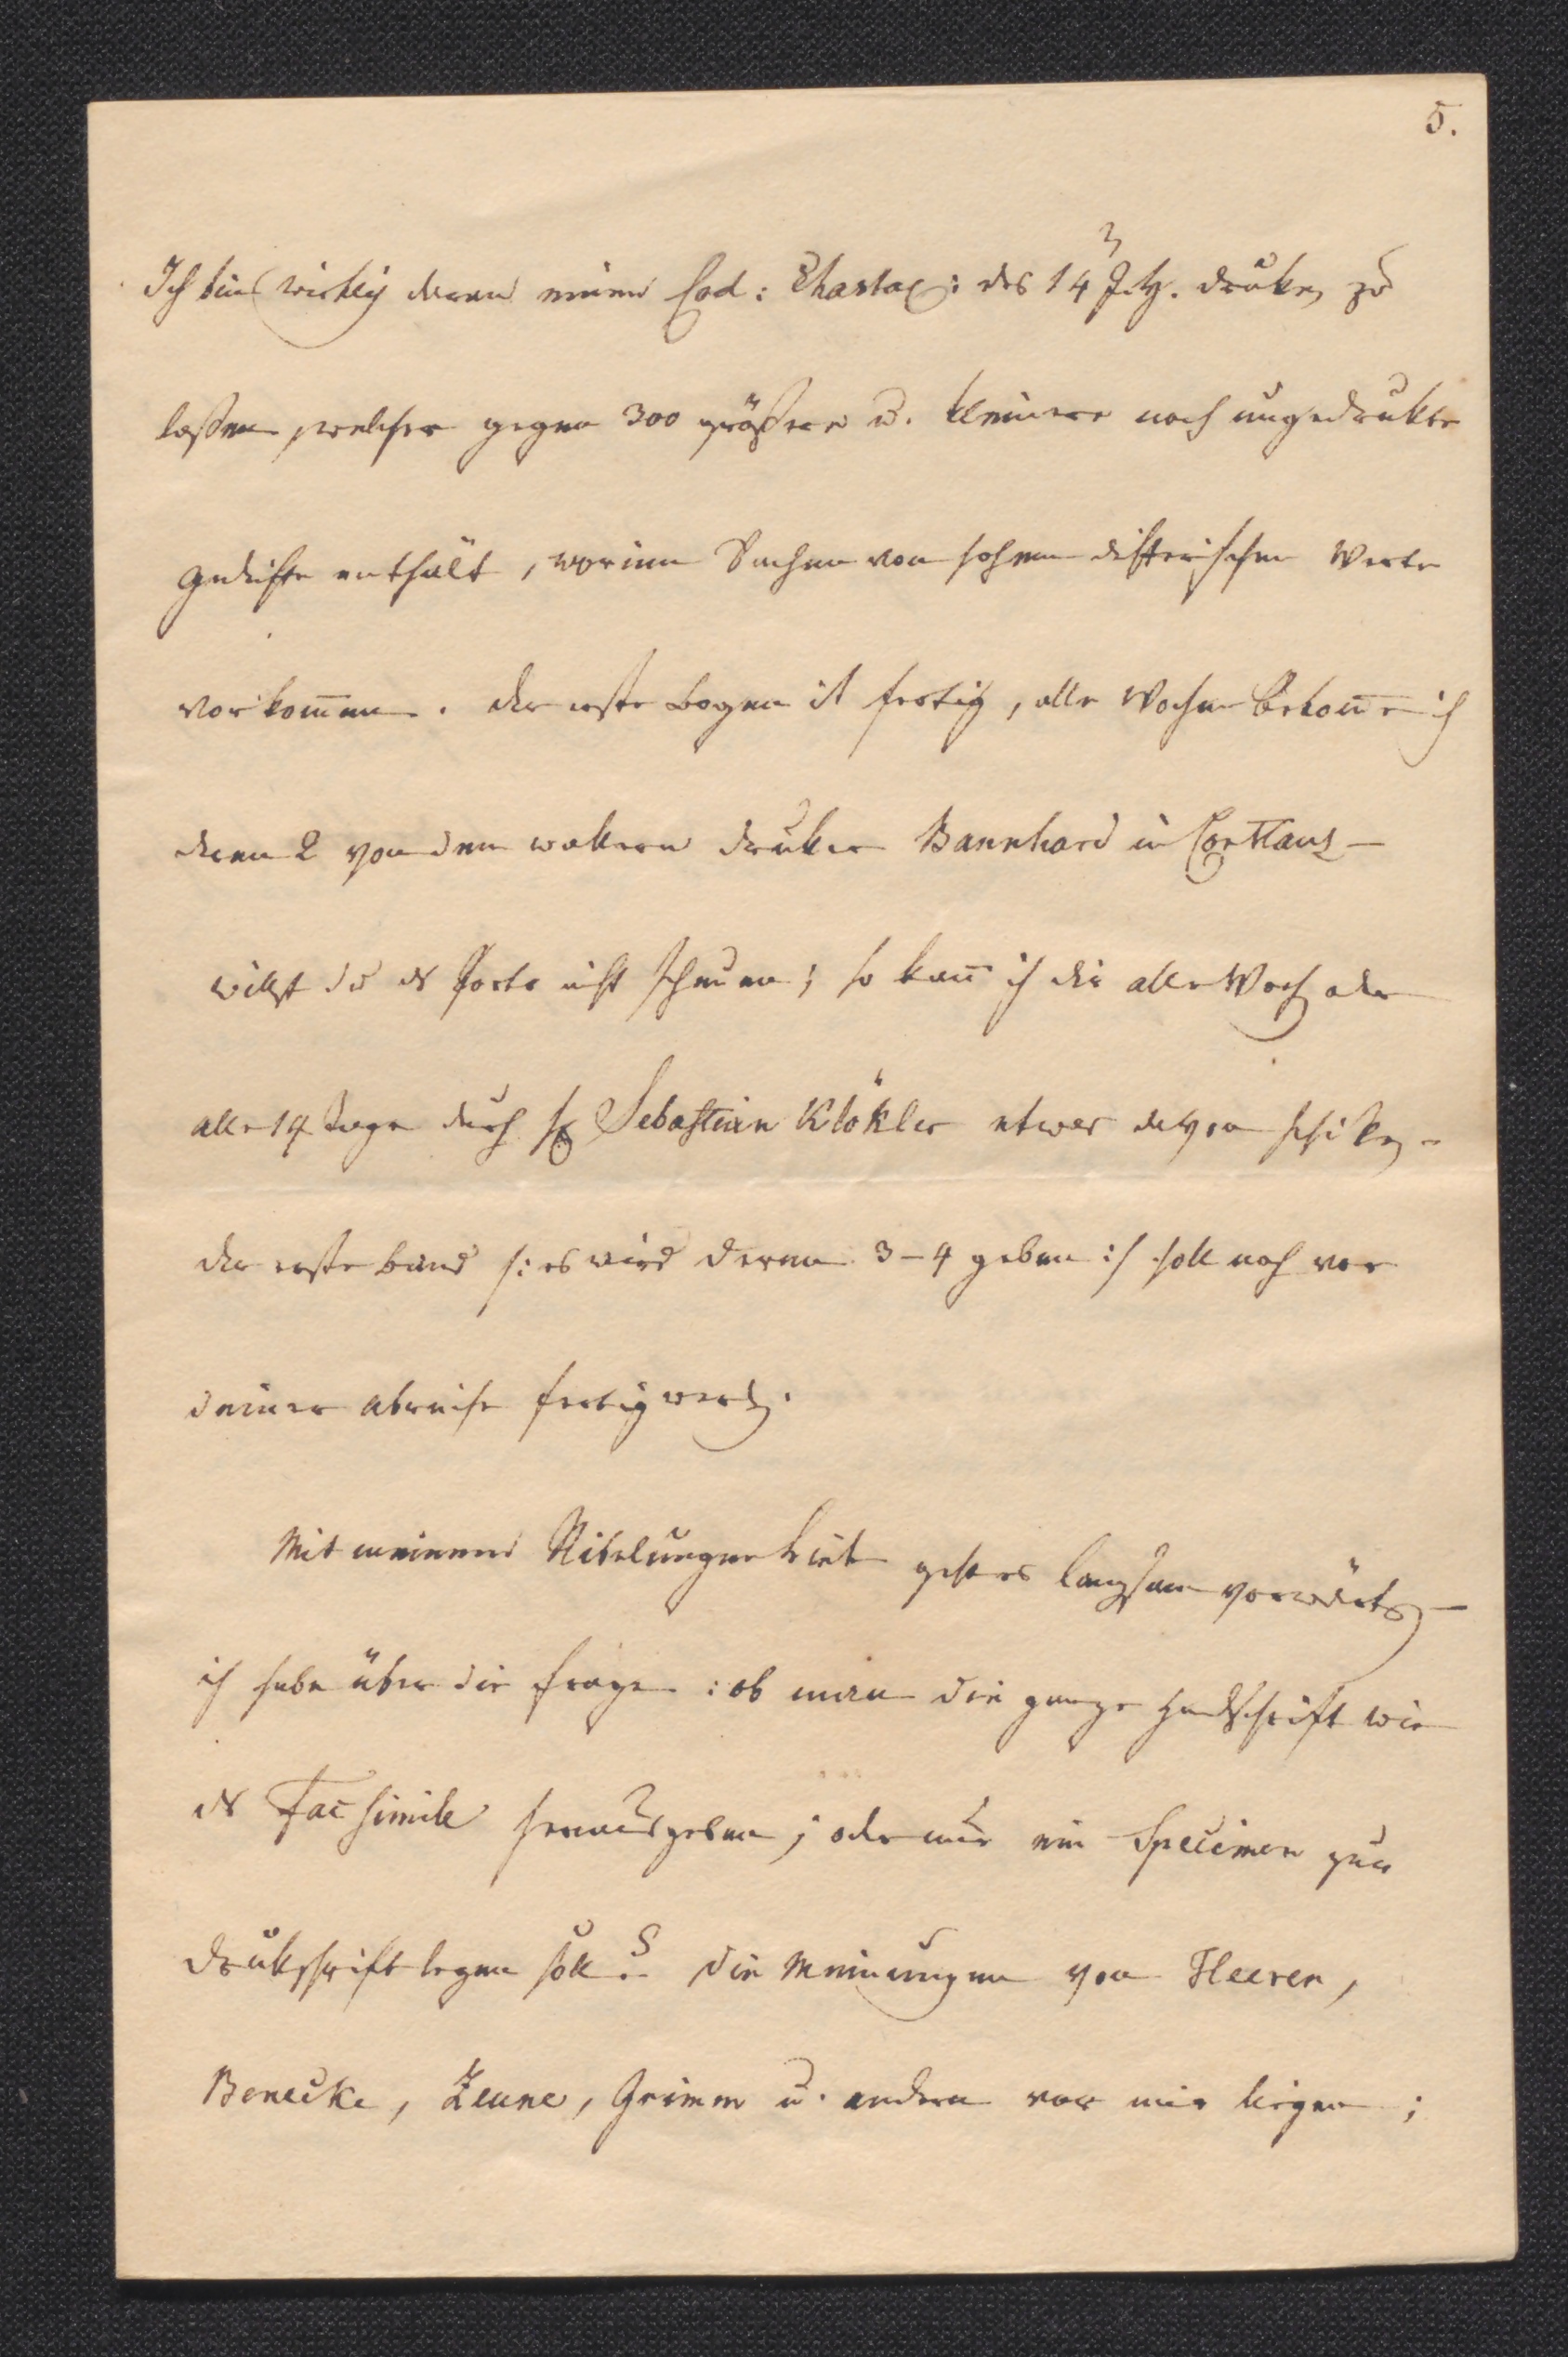 5.
Ich bin wirklich daran einen Cod: Chartac: des 14 Jh. druken zu
laßen, welcher gegen 300 größere u. kleinere noch ungedrukte
Gedichte enthält, worinn Sachen von hohem dichterischen Werte
vorkom̄en. der erste Bogen ist fertig, alle Wochen bekom̄e ich
deren 2 von dem wakern druker Bannhard in Constanz –
willst du das Porto nicht scheuen; so kan̄ ich dir alle Woch oder
alle 14 Tage durch H Sebastian Klökler etwas davon schiken.
der erste band /: es wird deren 3–4 geben :/ soll noch vor
deiner abreise fertig werden.
Mit meinem Nibelungen Liet geht es langsam vorwärts –
ich habe über die frage: ob man die ganze Handschrift wie
das Facsimile herausgeben; oder nur ein Specimen zur
drukschrift legen soll? die Meinungen von Heeren,
Benecke, Zeune, Grimm u. andern vor mir liegen;